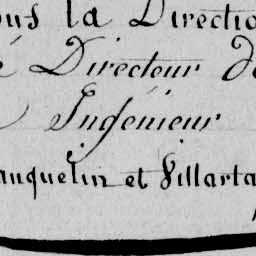 ous la Directio
é Directeur d
Ingénieur
anquetin et Villarta